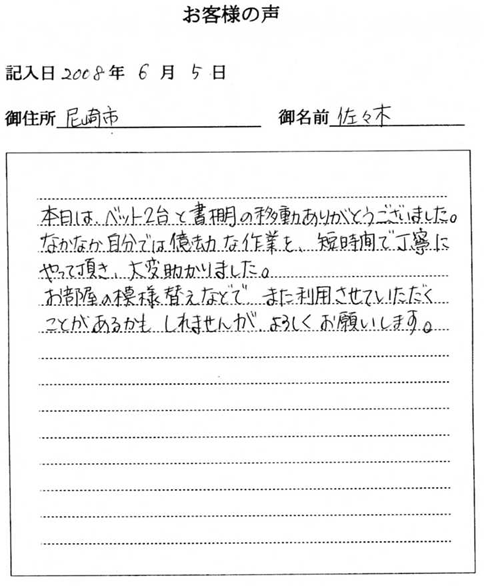 お客様の声
記入日 2008年 6月 5日
御住所 尼崎市 御名前 佐々木
本日は、ベット2台と書棚の移動ありがとうございました。
なかなか自分では億劫な作業を、短時間で丁寧に
やって頂き、大変助かりました。
お部屋の模様替えなどで、また利用させていただく
ことがあるかもしれませんが、よろしくお願いします。